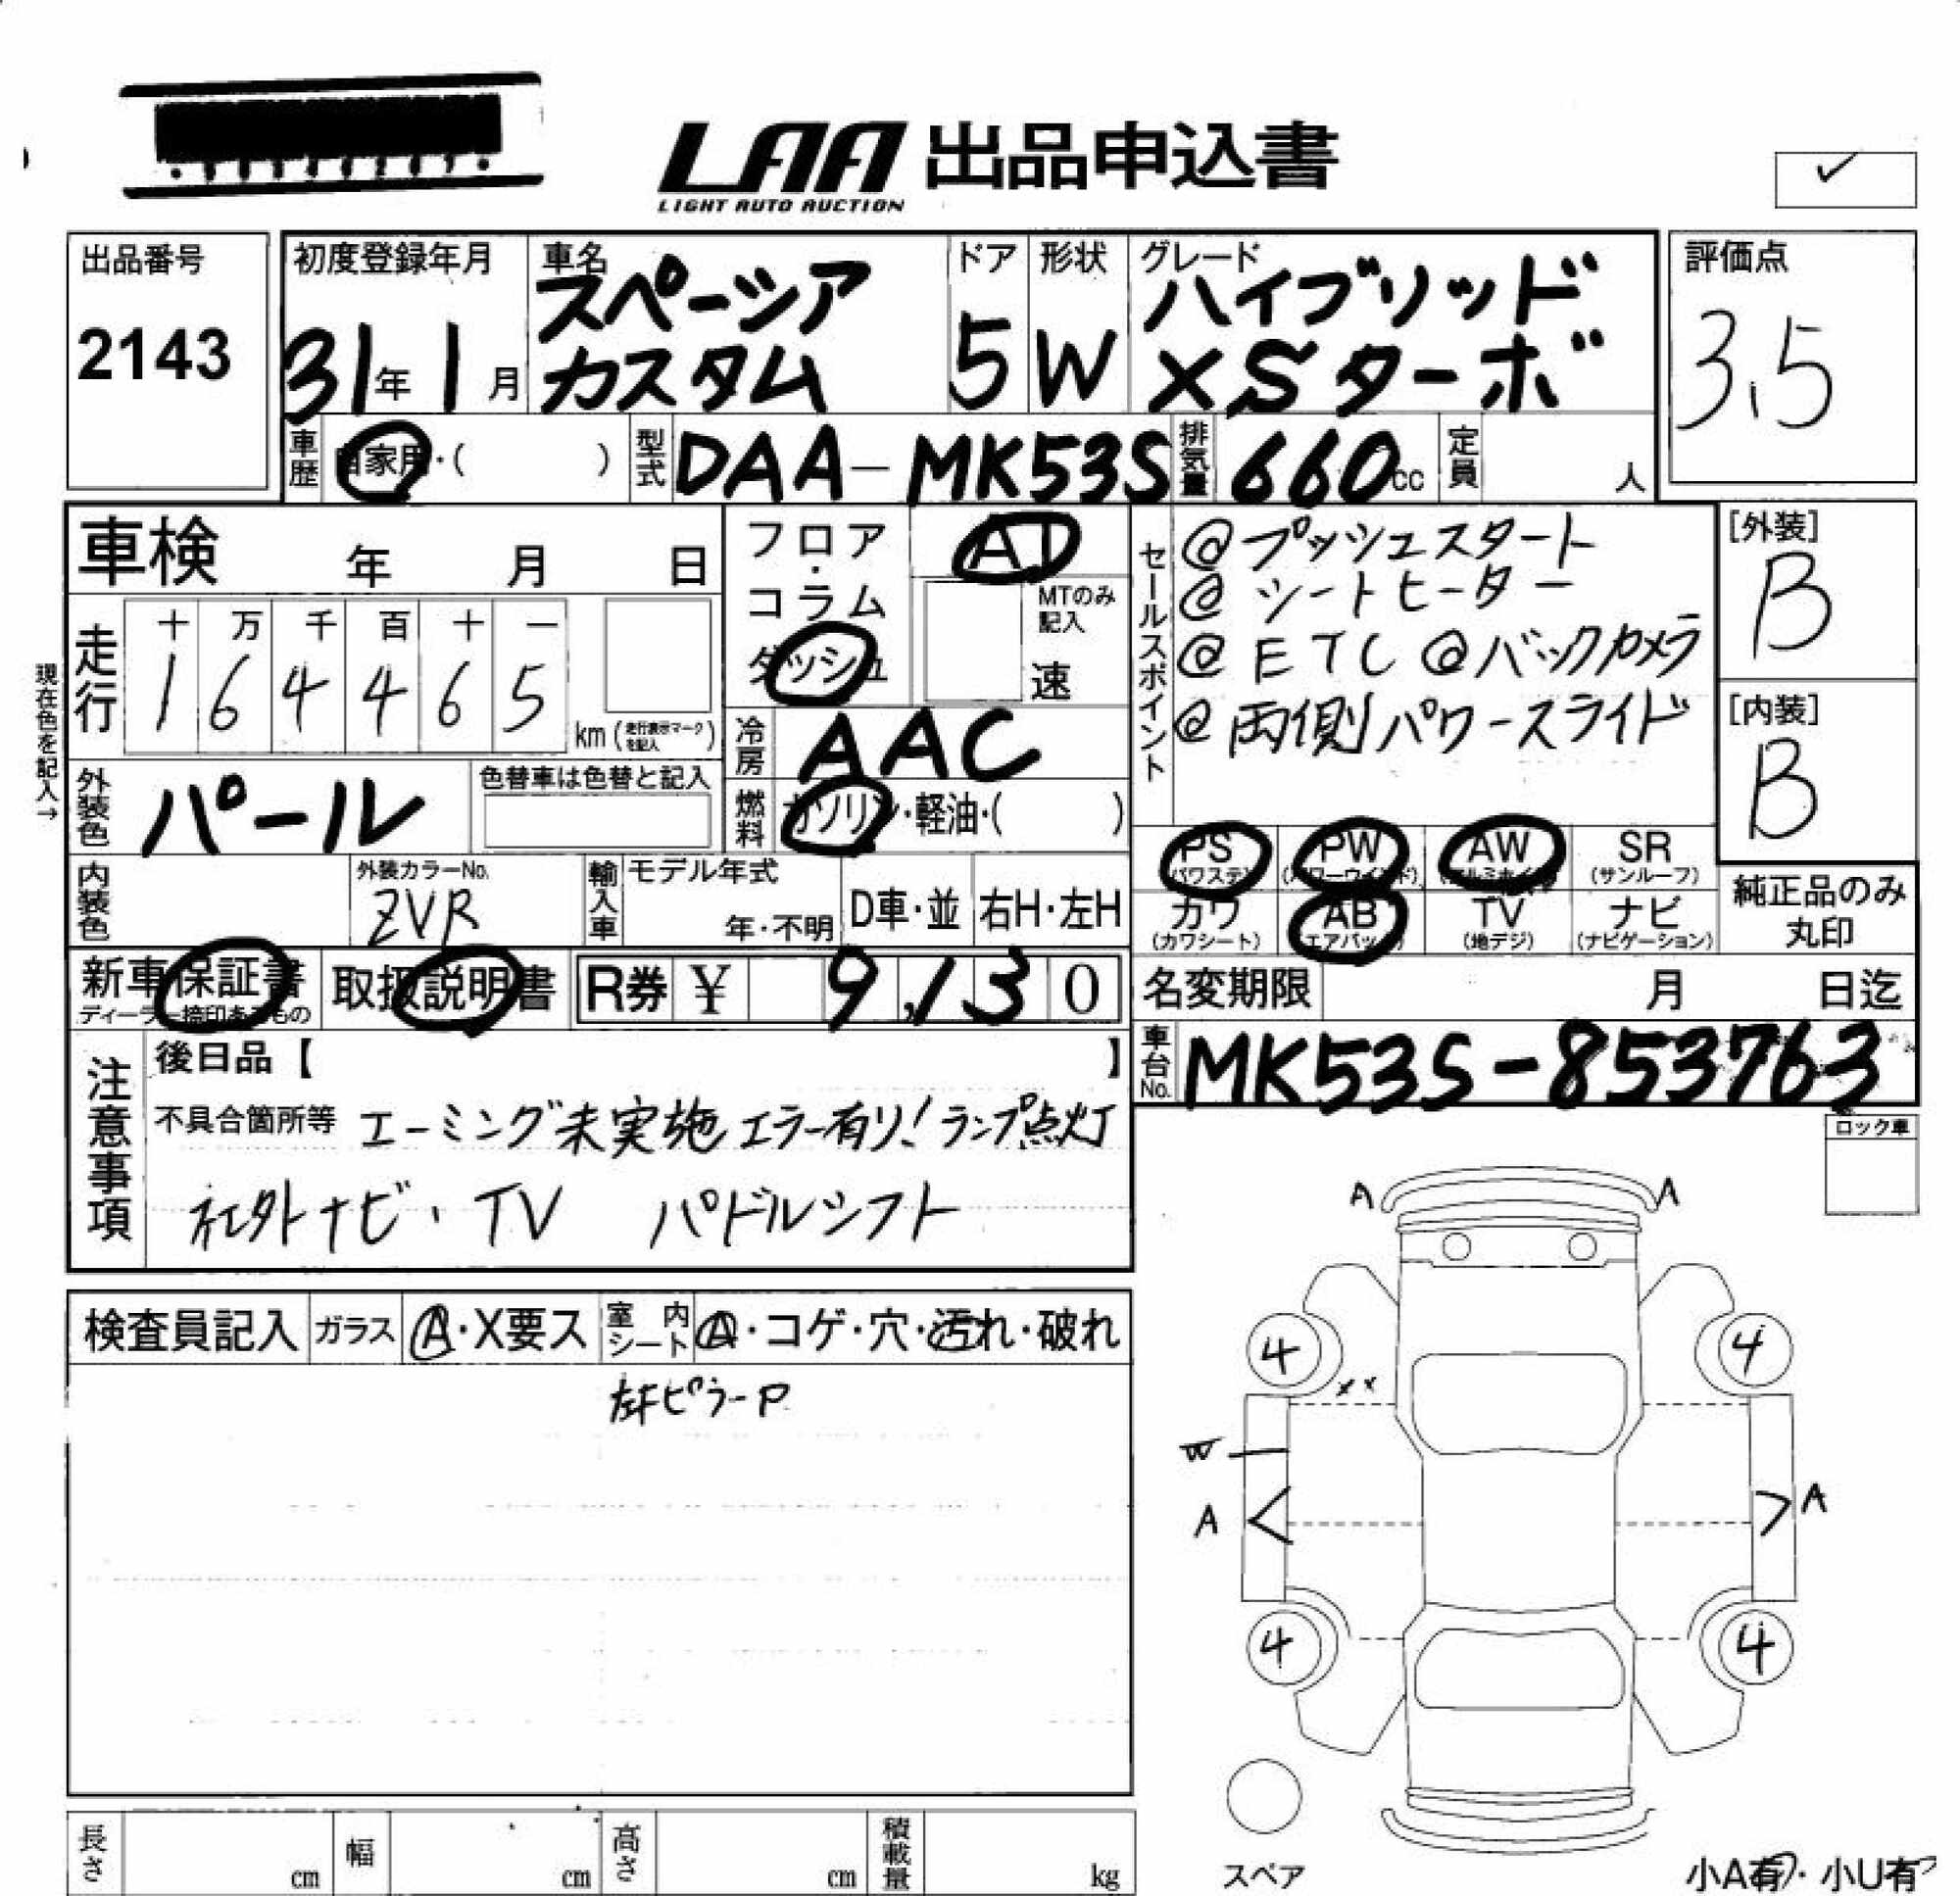 LAA 出品申込書
LIGHT AUTO AUCTION
出品番号
2143
初度登録年月
31年 1月
車名
スペーシア
カスタム
ドア
5
形状
W
グレード
ハイブリッド
XSターボ
評価点
3.5
車歴 自家用・( )
型式 DAA-MK53S
排気量 660cc
定員 人
車検 年 月 日
現在色を記入→
走行
十 万 千 百 十 一
1 6 4 4 6 5
km (走行表示マークを記入)
フロア・
コラム
ダッシュ
AT
MTのみ記入
速
冷房 AAC
燃料 ガソリン・軽油・( )
外装色 パール
色替車は色替と記入
内装色
外装カラーNo.
ZVR
輸入車
モデル年式
年・不明
D車・並
右H・左H
セールスポイント
@プッシュスタート
@シートヒーター
@ETC @バックカメラ
@両側パワースライド
[外装]
B
[内装]
B
PS (パワステ)
PW (パワーウインド)
AW (アルミホイル)
SR (サンルーフ)
カワ (カワシート)
AB (エアバッグ)
TV (地デジ)
ナビ (ナビゲーション)
純正品のみ
丸印
新車保証書
ディーラー捺印あるもの
取扱説明書
R券 ¥ 9,130
名変期限 月 日迄
車台No. MK53S-853763
注意事項
後日品【 】
不具合箇所等 エーミング未実施 エラー有り! ランプ点灯
社外ナビ・TV パドルシフト
ロック車
検査員記入
ガラス A・X要ス
室内シート A・コゲ・穴・汚れ・破れ
ピラーP
A A
4 4
XX
W
A A
4 4
スペア
長さ cm
幅 cm
高さ cm
積載量 kg
小A有・小U有